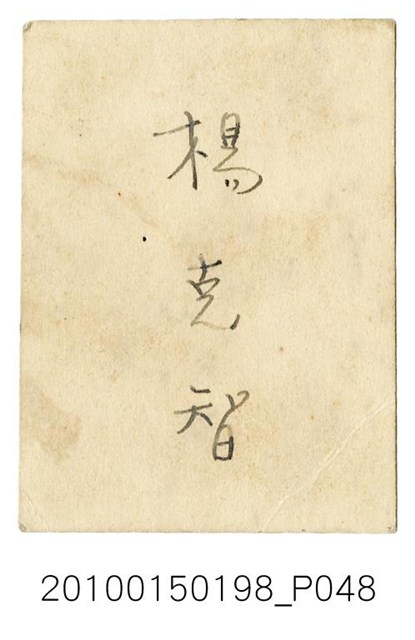 楊克智
20100150198_P048